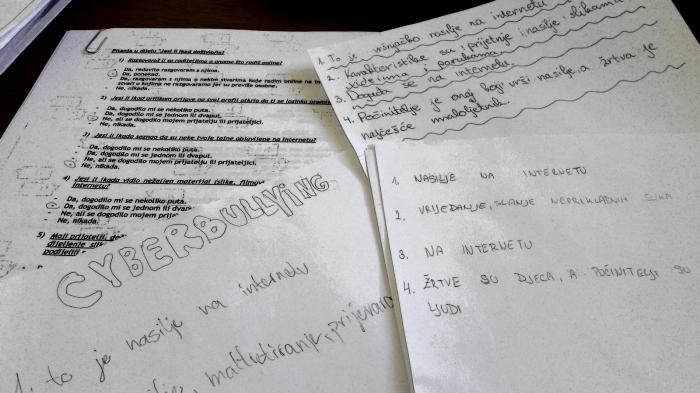 Pitanja u dijelu "Jesi li ikad doživio/la?
1) Razgovaraš li sa roditeljima o onome što radiš online?
Da, redovito razgovaram s njima.
Da, ponekad.
Da, razgovaram s njima o nekim stvarima koje radim online
Ne, nikada.
2) Jesi li ikad prilikom prijave na svoj profil otkrio da ti je lozinka
Da, dogodilo mi se nekoliko puta.
Da, dogodilo mi se jednom ili dvaput.
Ne, ali se dogodilo mojem prijatelju ili prijateljici.
Ne, nikada.
3) Jesi li ikada saznao da su neke tvoje tajne objavljene na internetu?
Da, dogodilo mi se nekoliko puta.
Da, dogodilo mi se jednom ili dvaput.
Ne, ali se dogodilo mojem prijatelju ili prijateljici.
Ne, nikada.
4) Jesi li ikada vidio neželjen materijal (slike,
internetu?
Da, dogodilo mi se nekoliko puta.
Da, dogodilo mi se jednom ili
Ne, ali se dogodilo mojem
Ne, nikada.
5) Moji prijatelji,
dijeljenje
podijelili
CYBERBULLYING
1. to je nasilje na internetu
maltretiranje,
1. To je vršnjačko nasilje na internetu
2. Karakteristike su prijetnje i nasilje slikama
videima i porukama.
3. Događa se na internetu.
4. Počinitelj je onaj koji vrši nasilje, a žrtva je
najčešće maloljetnik.
1. NASILJE NA INTERNETU
2. VRIJEĐANJE, SLANJE NEPRIKLADNIH SLIKA
3. NA INTERNETU
4. ŽRTVE SU DJECA, A POČINITELJI SU
LJUDI